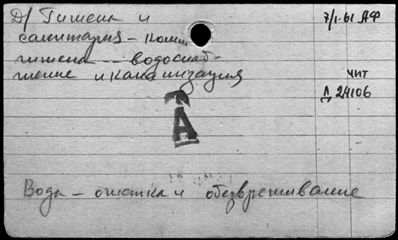 Д/ Гигиена и
санитария – комм.
гигиена – – водоснаб-
жение и канализация
7/I-61 АФ
ЧИТ
Д 24106
А
Вода – очистка и обезвреживание